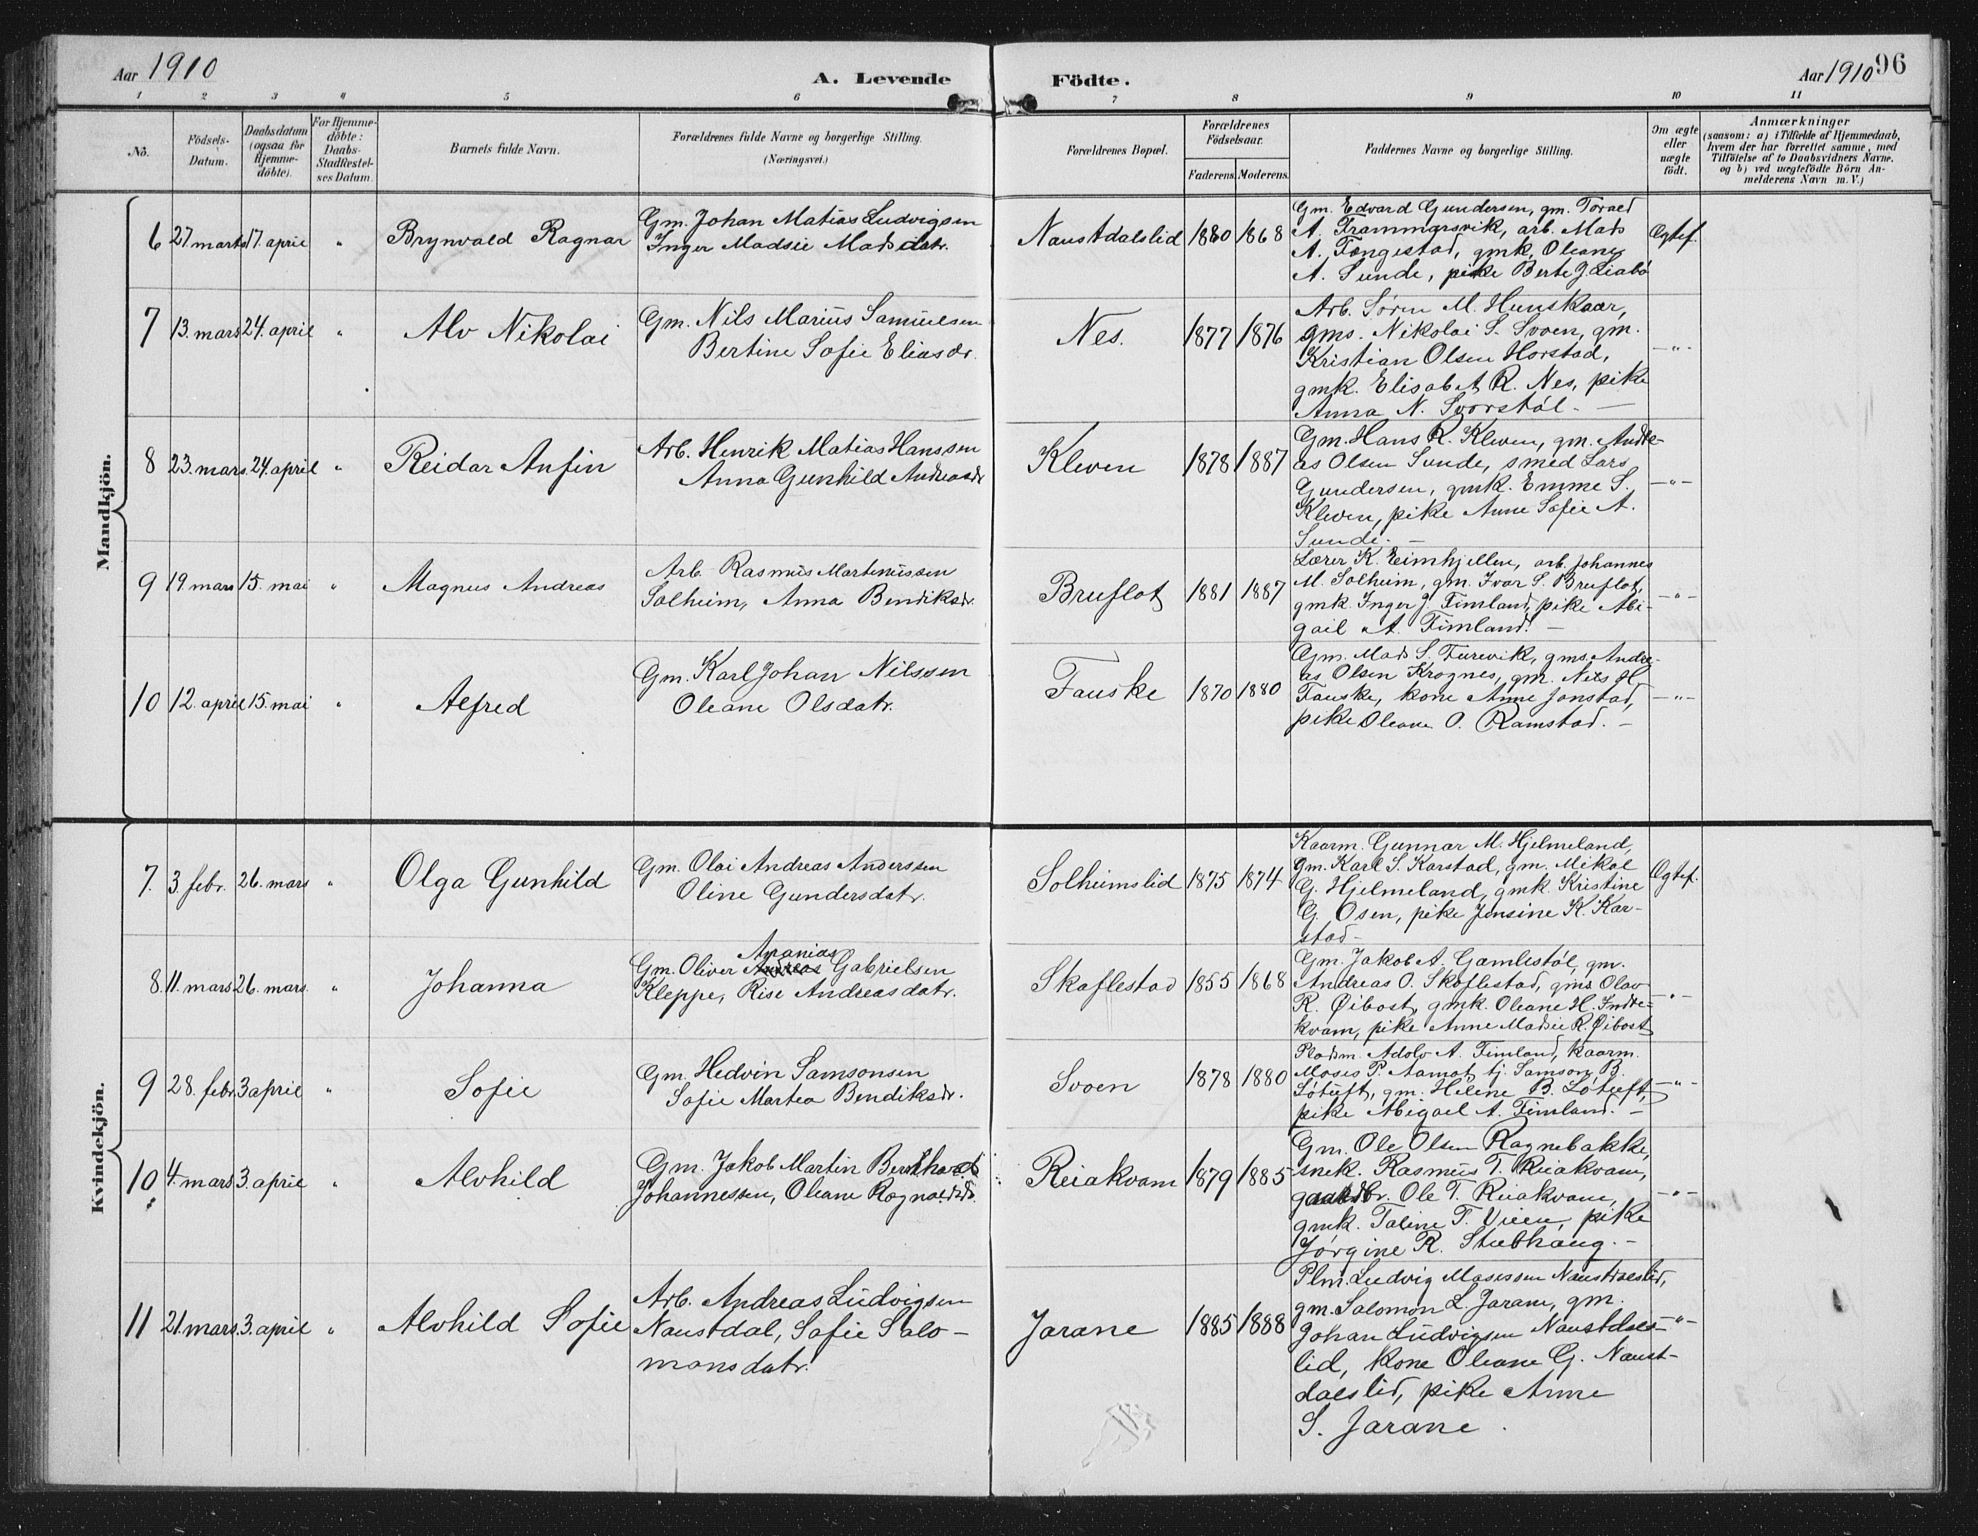 Aar 1910
A. Levende Födte.
Aar 1910 96
1 2 3 4 5 6 7 8 9 10 11
No.
Födsels-
Datum.
Daabsdatum
(ogsaa for
Hjemme-
döbte).
For Hjemme-
döbte:
Daabs-
Stadfæstel-
ses Datum.
Barnets fulde Navn.
Forældrenes fulde Navne og borgerlige Stilling.
(Næringsvei.)
Forældrenes Bopæl.
Forældrenes
Födselsaar.
Faderens. Moderens.
Faddernes Navne og borgerlige Stilling.
Om ægte
eller
uægte
födt.
Anmærkninger
(saasom: a) i Tilfælde af Hjemmedaab,
hvem der har forrettet samme, med
Tilföielse af to Daabsvidners Navne.
og b) ved uægtefödte Börn An-
melderens Navn m. V.)
Mandkjön.
6 27 marts 17. april " Brynvald Ragnar
Gm. Johan Matias Ludvigsen
Inger Madsie Madsdatr.
Naustdalslid 1880 1868
Gm. Edvard Gundersen, gm. Torald
A. Frammarsvik, arb. Mads
A. Fængestad, gmk. Oleane
A. Sunde, pike Berte J. Liabø
Ægtef.
7 13. mars 24. april " Alv Nikolai
Gm. Nils Marius Samuelsen
Bertine Sofie Eliasdr.
Nes. 1877 1876
Arb. Søren M. Hunskaar,
gms. Nikolai S. Svoen, gm.
Kristian Olsen Horstad,
gmk. Elisabet R. Nes, pike
Anna N. Svorstøl. —
—"—
8 23. mars 24. april " Reidar Anfin
Arb. Henrik Matias Hanssen
Anna Gunhild Andreasdr
Kleven 1878 1887
Gm. Hans R. Kleven, gm. Andre-
as Olsen Sunde, smed Lars
Gundersen, gmk. Emme S.
Kleven, pike Anne Sofie A.
Sunde. —
—"—
9 19 mars 15. mai " Magnus Andreas
Arb. Rasmus Martinussen
Solheim, Anna Bendiksdr.
Bruflot 1881 1887
Lærer K. Eimhjellen, arb. Johannes
M. Solheim, gm. Ivar S. Bruflot,
gmk. Inger J. Timland, pike Abi-
gail A. Timland. —
—"—
10 12. april 15. mai " Alfred
Gm. Karl Johan Nilssen
Oleane Olsdatr.
Fauske 1870 1880
Gm. Mads S. Furevik, gms. Andre-
as Olsen Krognes, gm. Nils H.
Fauske, kone Anne Jonstad,
pike Oleane O. Ramstad. —
—"—
Kvindekjön.
7. 3. febr. 26. mars " Olga Gunhild
Gm. Olai Andreas Anderssen
Oline Gundersdatr.
Solheimslid 1875 1874
Kaarm. Gunnar M. Hjelmeland,
gm. Karl S. Karstad, gm. Mikal
G. Hjelmeland, gmk. Kristine
G. Osen, pike Jensine K. Kar-
stad —
Ægtef.
8. 11. mars 26. mars. " Johanna
Ananias
Gm. Oliver Andreas Gabrielsen
Kleppe, Rise Andreasdatr.
Skaflestad 1855 1868
Gm. Jakob A. Gamlestøl, gm.
Andreas O. Skaflestad, gms Olav
R. Øibost, gmk. Oleane H. Indre-
kvam, pike Anne Madsie R. Øibost
—"—
9 28. febr. 3 april " Sofie
Gm. Hedvin Samsonsen
Sofie Martea Bendiksdr.
Svoen 1878 1880
Pladsm. Adolv A. Timland, kaarm.
Moses P. Aamot, tj. Samson B.
Løtuft, gm. Helene B. Løtuft,
pike Abigael A. Timland. —
—"—
10 4. mars 3. april " Alvhild
Gm. Jakob Martin Bernhard
Johannessen, Oleane Ragnvaldsd.
Reiakvam 1879 1885
Gm. Ole Olsen Ragnebakke,
snek. Rasmus T. Reiakvam,
gaardbr. Ole T. Reiakvam,
gmk. Taline T. Vieen, pike
Jørgine R. Stubhaug. —
—"—
11 21 mars. 3. april " Alvhild Sofie
Arb. Andreas Ludvigsen
Naustdal, Sofie Salo-
monsdatr.
Jarane 1885 1888
Plm. Ludvig Mosessen Naustdalslid,
gm. Salomon L. Jarane, gm.
Johan Ludvigsen Naustdals-
lid, kone Oleane G. Naust-
dalslid, pike Anne
S. Jarane.
—"—